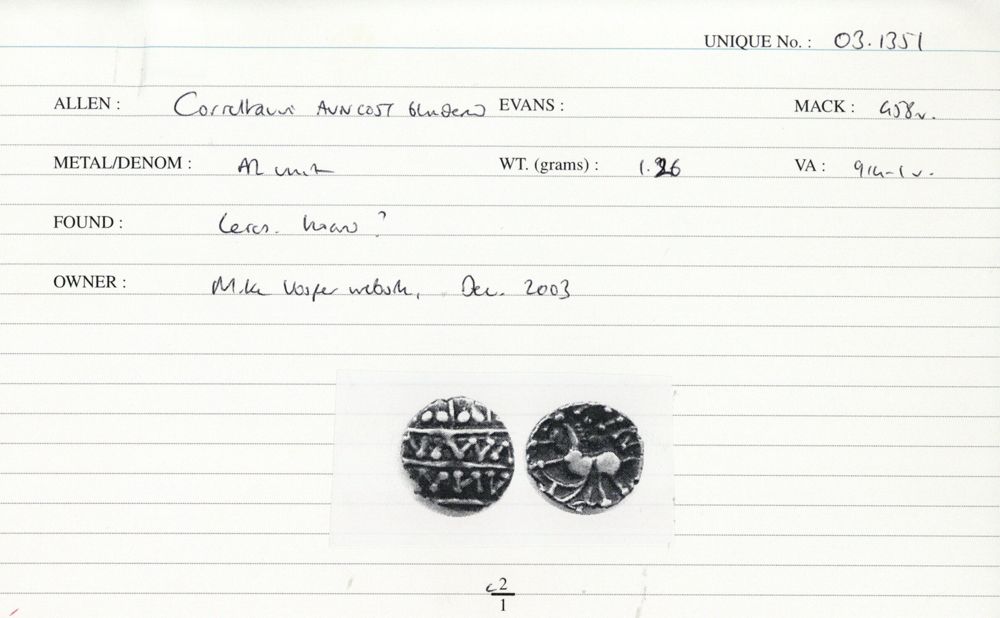 UNIQUE No. : 03.1351
ALLEN : Corieltauvi AVN COST blundered EVANS : MACK : 458v.
METAL/DENOM : AR unit WT. (grams) : 1.26 VA : 914-1 v.
FOUND : Leics. ?
OWNER : Mike Vosper website, Dec. 2003
c 2
1